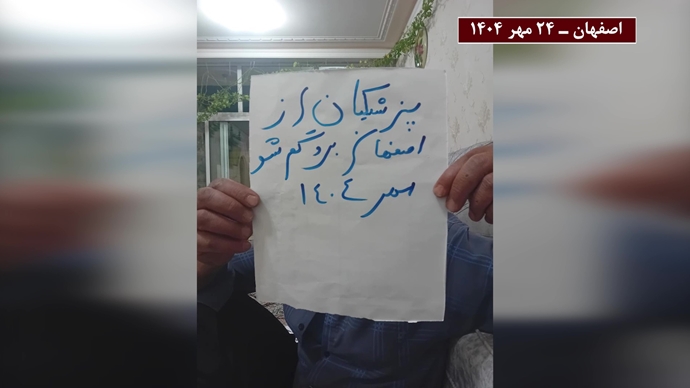 اصفهان ــ ۲۴ مهر ۱۴۰۴
پزشکیان از
اصفهان برو گم شو
مهر ۱۴۰۴